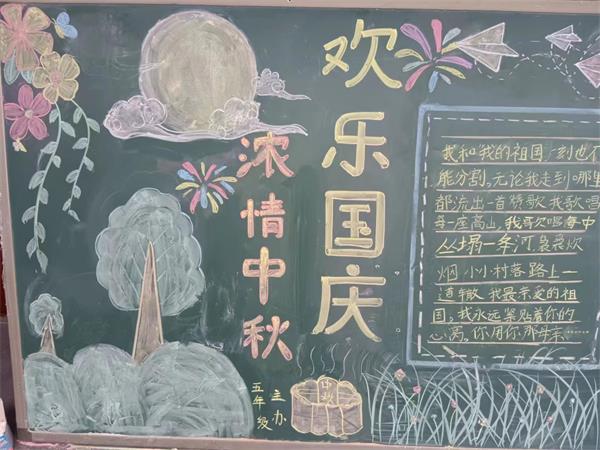 欢乐国庆
浓情中秋
我和我的祖国一刻也不
能分割。无论我走到哪里
都流出一首赞歌我歌唱
每一座高山,我歌唱每
一条河袅袅炊
烟 小小村落路上一
道辙 我最亲爱的祖
国。我永远紧贴着你的
心窝。你用你那母亲……
五年级
主办
中秋